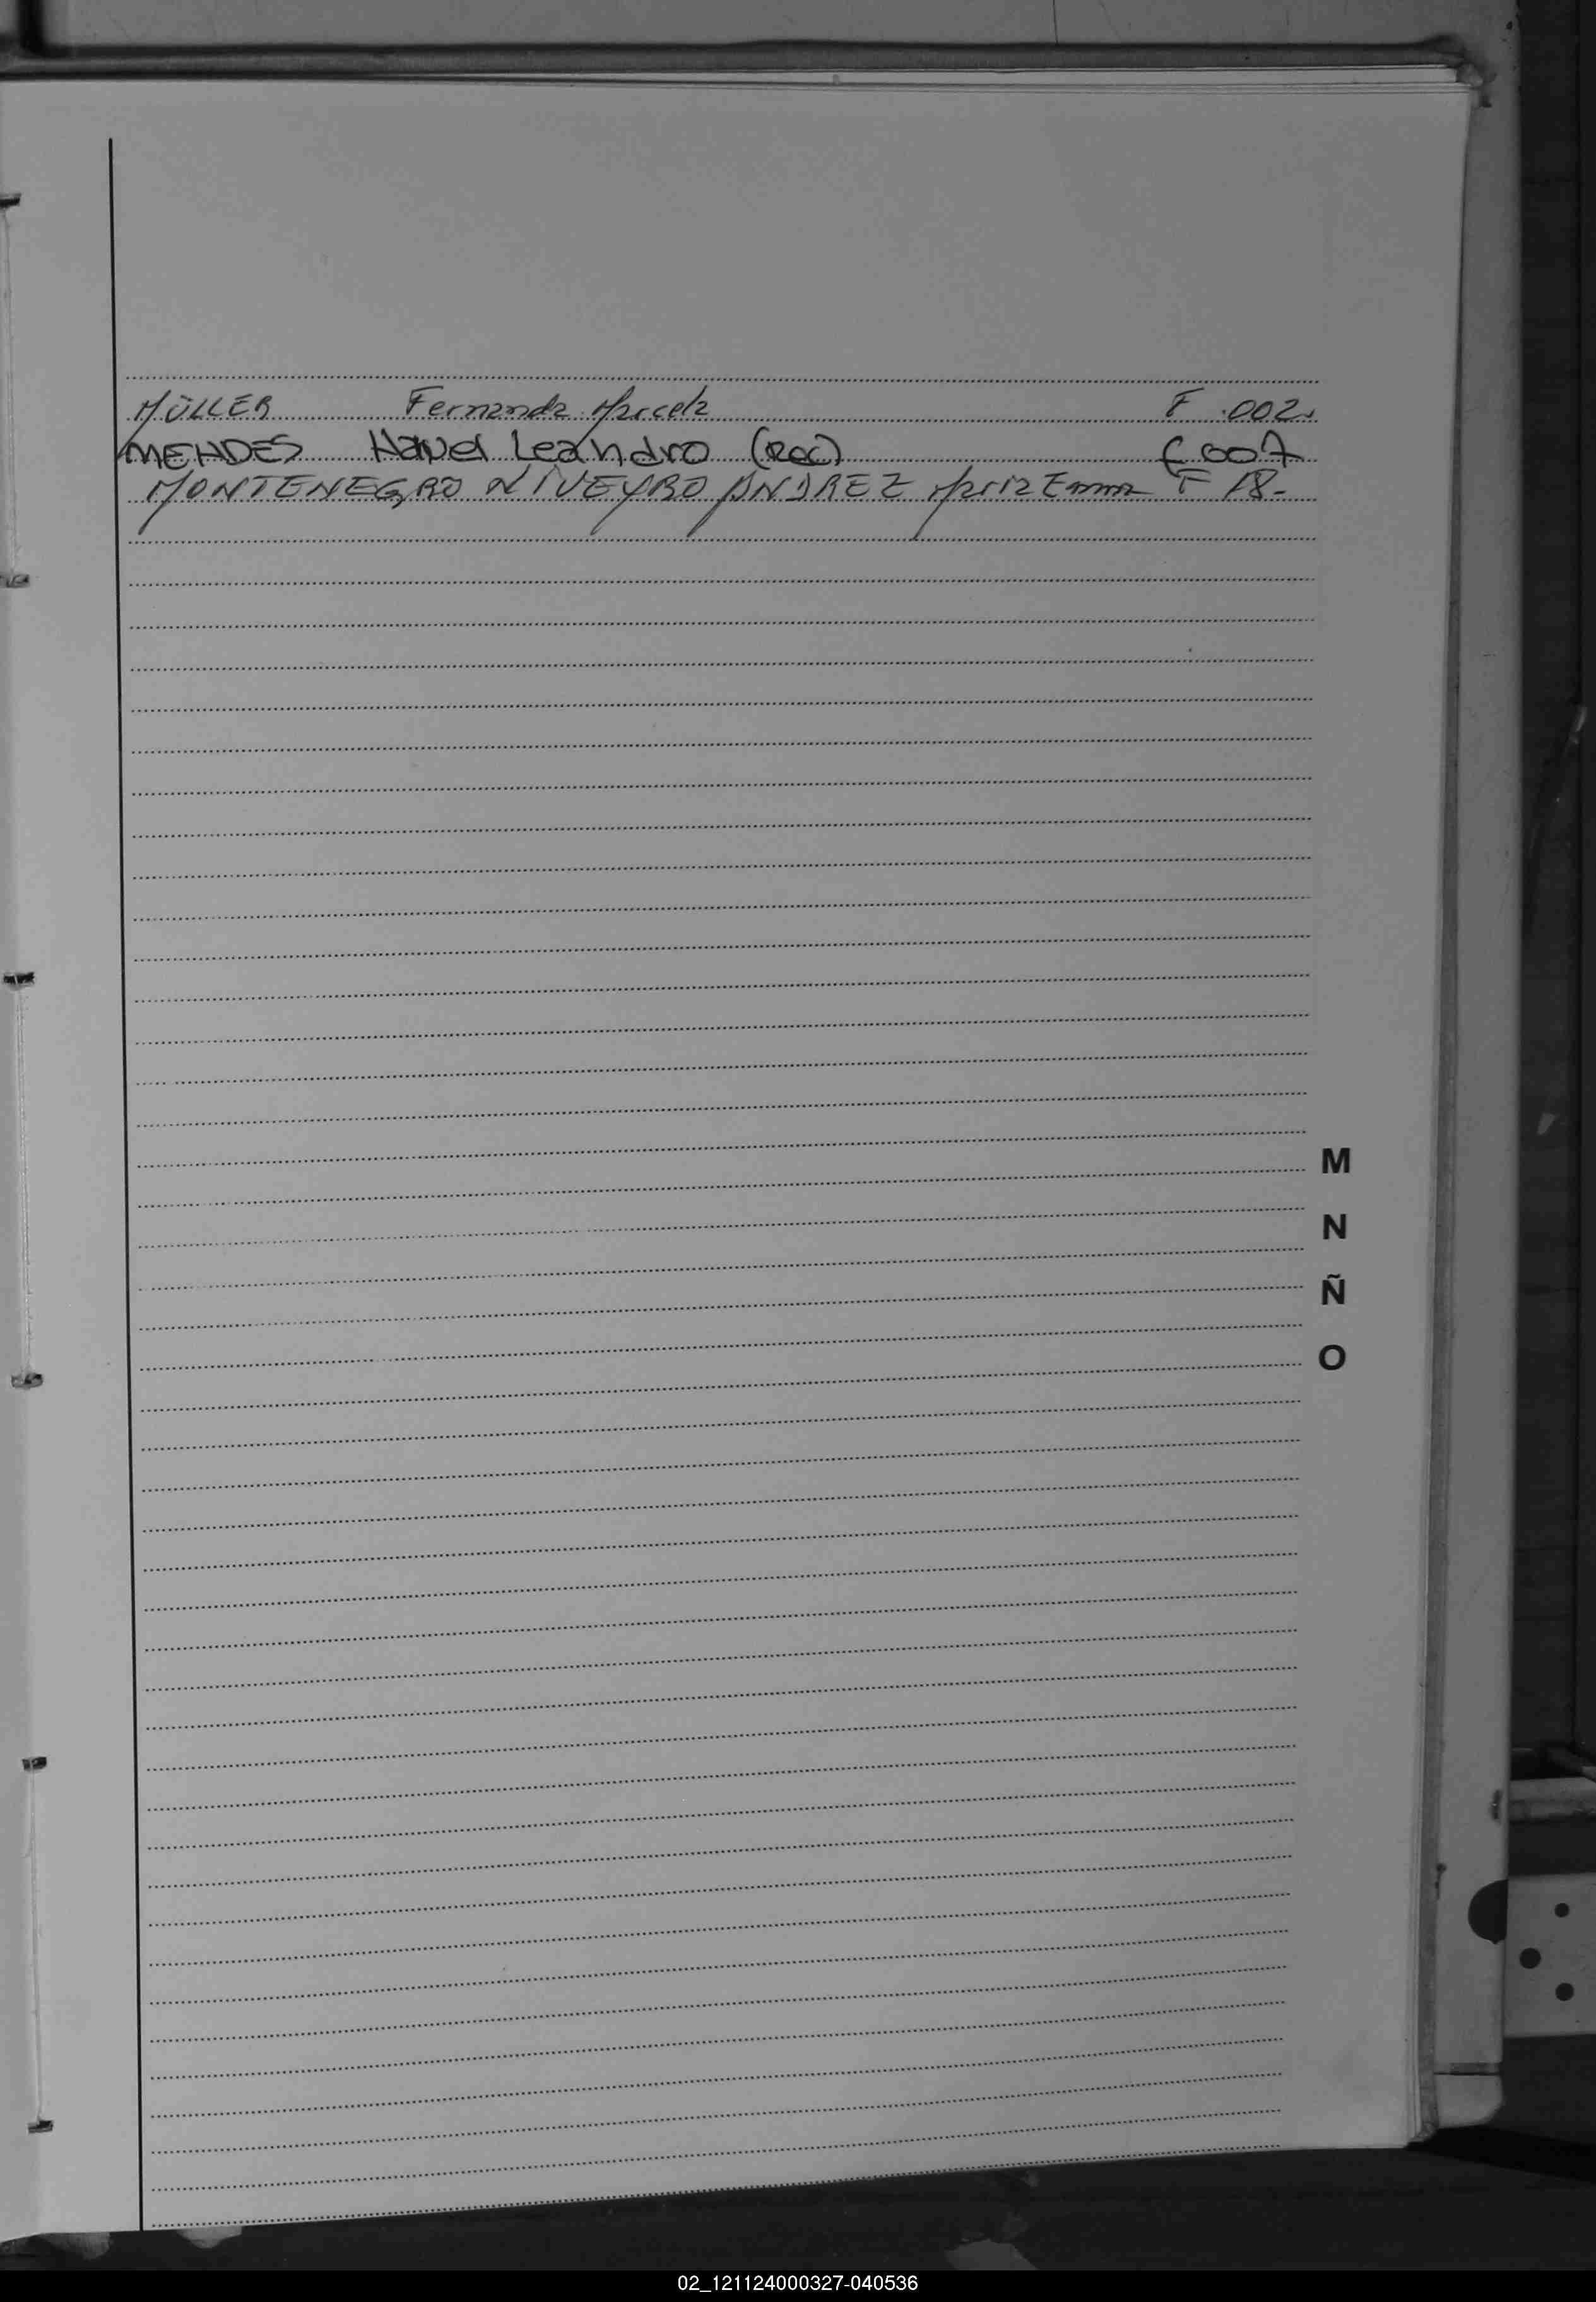 MÜLLER Fernanda Marcela F 002.
MENDES Leandro (Rec) F 007
MONTENEGRO NIVEYRO ANDREZ Maria Emma F 18.
M
N
Ñ
O
02_121124000327-040536